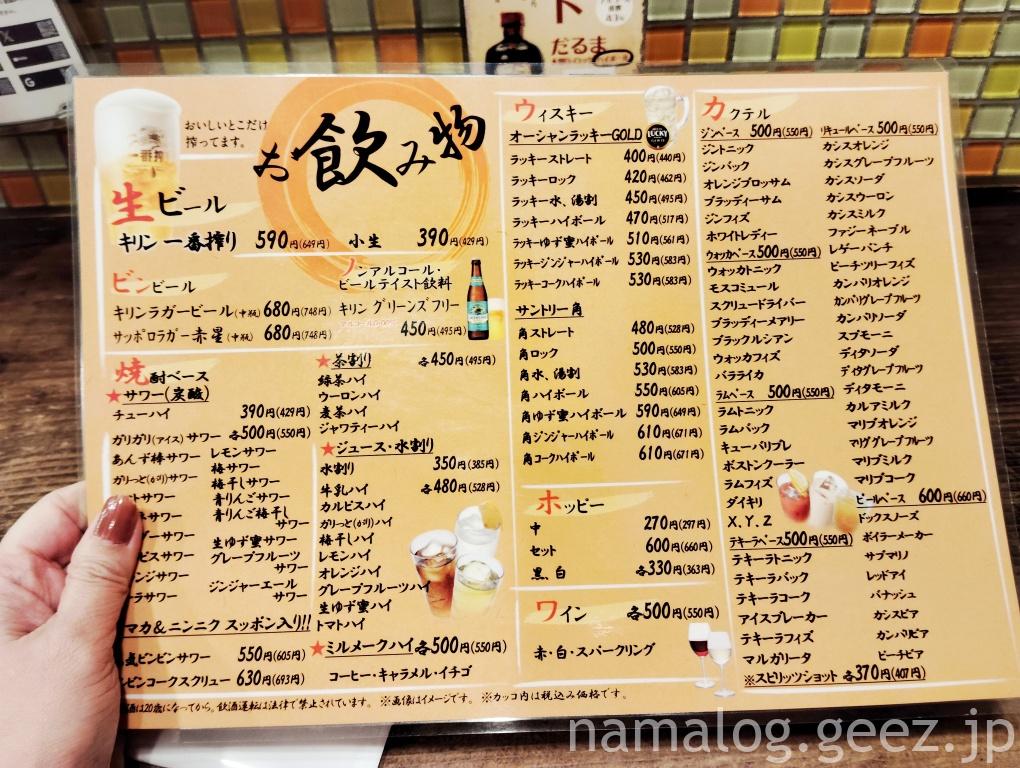 だるま
おいしいとこだけ
搾ってます。
お飲み物
生ビール
キリン 一番搾り 590円(649円) 小生 390円(429円)
ビンビール
キリンラガービール(中瓶) 680円(748円)
サッポロラガー赤星(中瓶) 680円(748円)
ノンアルコール・
ビールテイスト飲料
キリン グリーンズフリー
450円(495円)
焼酎ベース
★サワー(炭酸)
チューハイ 390円(429円)
ガリガリ(アイス)サワー 各500円(550円)
あんず棒サワー
ガリっと(ガリ)サワー
トサワー
サワー
ーサワー
ピスサワー
ンジサワー
ラサワー
レモンサワー
梅サワー
梅干しサワー
青りんごサワー
青りんご梅干し
サワー
生ゆず蜜サワー
グレープフルーツ
サワー
ジンジャーエール
サワー
マカ&ニンニク スッポン入り!!
ビンビンサワー 550円(605円)
ビンコークスクリュー 630円(693円)
★茶割り 各450円(495円)
緑茶ハイ
ウーロンハイ
麦茶ハイ
ジャワティーハイ
★ジュース・水割り
水割り 350円(385円)
牛乳ハイ 各480円(528円)
カルピスハイ
ガリっと(ガリ)ハイ
梅干しハイ
レモンハイ
オレンジハイ
グレープフルーツハイ
生ゆず蜜ハイ
トマトハイ
★ミルメークハイ 各500円(550円)
コーヒー・キャラメル・イチゴ
ウィスキー
オーシャンラッキーGOLD
LUCKY
ラッキーストレート 400円(440円)
ラッキーロック 420円(462円)
ラッキー水、湯割 450円(495円)
ラッキーハイボール 470円(517円)
ラッキーゆず蜜ハイボール 510円(561円)
ラッキージンジャーハイボール 530円(583円)
ラッキーコークハイボール 530円(583円)
サントリー角
角ストレート 480円(528円)
角ロック 500円(550円)
角水、湯割 530円(583円)
角ハイボール 550円(605円)
角ゆず蜜ハイボール 590円(649円)
角ジンジャーハイボール 610円(671円)
角コークハイボール 610円(671円)
ホッピー
中 270円(297円)
セット 600円(660円)
黒、白 各330円(363円)
ワイン 各500円(550円)
赤・白・スパークリング
カクテル
ジンベース 500円(550円)
ジントニック
ジンバック
オレンジブロッサム
ブラッディーサム
ジンフィズ
ホワイトレディー
ウォッカベース 500円(550円)
ウォッカトニック
モスコミュール
スクリュードライバー
ブラッディーメアリー
ブラックルシアン
ウォッカフィズ
バラライカ
ラムベース 500円(550円)
ラムトニック
ラムバック
キューバリブレ
ボストンクーラー
ラムフィズ
ダイキリ
X.Y.Z
テキーラベース 500円(550円)
テキーラトニック
テキーラバック
テキーラコーク
アイスブレーカー
テキーラフィズ
マルガリータ
※スピリッツショット 各370円(407円)
リキュールベース 500円(550円)
カシスオレンジ
カシスグレープフルーツ
カシスソーダ
カシスウーロン
カシスミルク
ファジーネーブル
レゲーパンチ
ピーチツリーフィズ
カンパリオレンジ
カンパリグレープフルーツ
カンパリソーダ
スプモーニ
ディタソーダ
ディタグレープフルーツ
ディタモーニ
カルアミルク
マリブオレンジ
マリブグレープフルーツ
マリブミルク
マリブコーク
ビールベース 600円(660円)
ドックスノーズ
ボイラーメーカー
サブマリノ
レッドアイ
パナッシュ
カシスビア
カンパリビア
ピーチビア
酒は20歳になってから。飲酒運転は法律で禁止されています。 ※画像はイメージです。 ※カッコ内は税込み価格です。
namalog.geez.jp